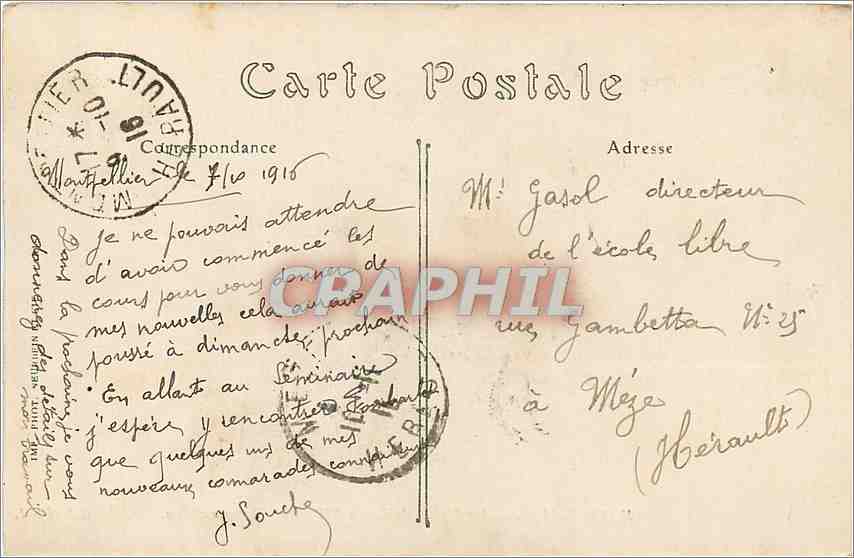 Carte Postale
MONTPELLIER
17 * 9-10 16
HERAULT
Correspondance
Adresse
Montpellier le 9/10 1916
Je ne pouvais attendre
d'avoir commencé les
cours pour vous donner de
mes nouvelles cela aurait
poussé à dimanche prochain
En allant au Séminaire
j'espère y rencontrer
que quelques uns de mes
nouveaux camarades
J. Souche
Dans la prochaine je vous
donnerai des détails sur
mon travail
Mr Gasol directeur
de l'école libre
rue Gambetta No 25
à Mèze
(Hérault)
CPAPHIL
HERAULT
IMP. PHOT. NEURDEIN